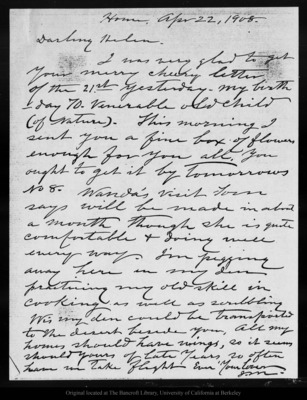 Home, Apr 22, 1908.
Darling Helen.
I was very glad to get
your merry cheery letter
of the 21st yesterday. My birth
-day 70. Venerable old child
(of Nature). This morning I
sent you a fine box of flowers
enough for you all. You
ought to get it by tomorrows
No 8. Wanda's visit
says will be made in about
a month though she is quite
comfortable & doing well
every way. I'm pegging
away here in my den
practising my old skill in
cooking as well as scribbling
Wis my den could be transported
to the desert beside you, All my
homes should have wings, so it seems
should yours of late years, so often
have we take flight Ever Your lover
Located at The Bancroft Library, University of California at Berkeley